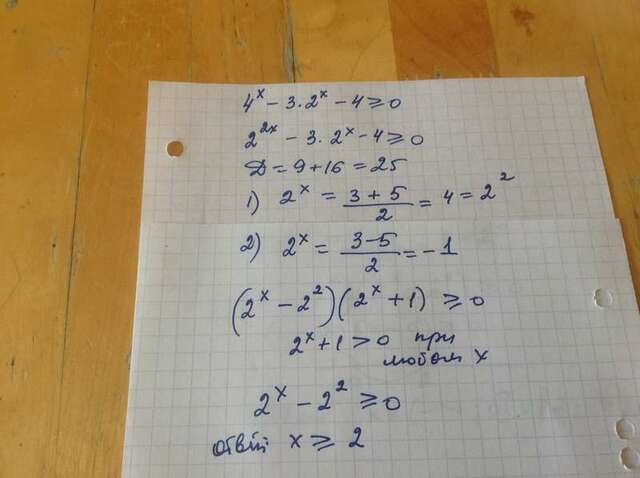 4^x - 3·2^x - 4 ≥ 0
2^2x - 3·2^x - 4 ≥ 0
D = 9 + 16 = 25
1) 2^x = (3 + 5)/2 = 4 = 2^2
2) 2^x = (3 - 5)/2 = -1
(2^x - 2^2)(2^x + 1) ≥ 0
2^x + 1 > 0 при
любом x
2^x - 2^2 ≥ 0
ответ x ≥ 2